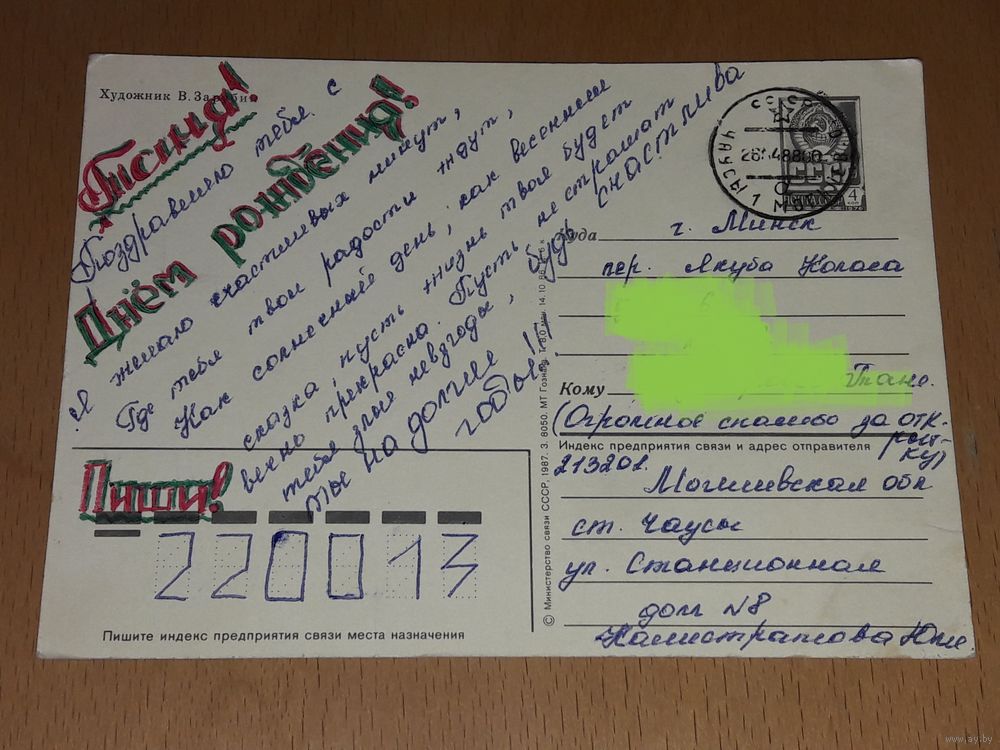 Художник В. Зарубин
Таня!
Поздравляю тебя с
Днём рождения!
Я желаю счастливых минут,
Где тебя твои радости ждут,
Как солнечный день, как весенняя
сказка, пусть жизнь твоя будет
вечно прекрасна. Пусть не страшат
тебя злые невзгоды, будь счастлива
ты на долгие
годы!!!
Пиши!
220013
Пишите индекс предприятия связи места назначения
© Министерство связи СССР, 1987. З. 8050. МТ Гознака. Т. 8,0 млн. 14.10
СССР
ПОЧТА СССР
4
коп
ЧАУСЫ
Куда
г. Минск
пер. Якуба Коласа
6
Кому
Тане.
(Огромное спасибо за отк-
рыт-
ку)
Индекс предприятия связи и адрес отправителя
213201.
Могилевская обл
ст. Чаусы
ул. Станционная
дом №8
Калистратова Юля
www.ay.by